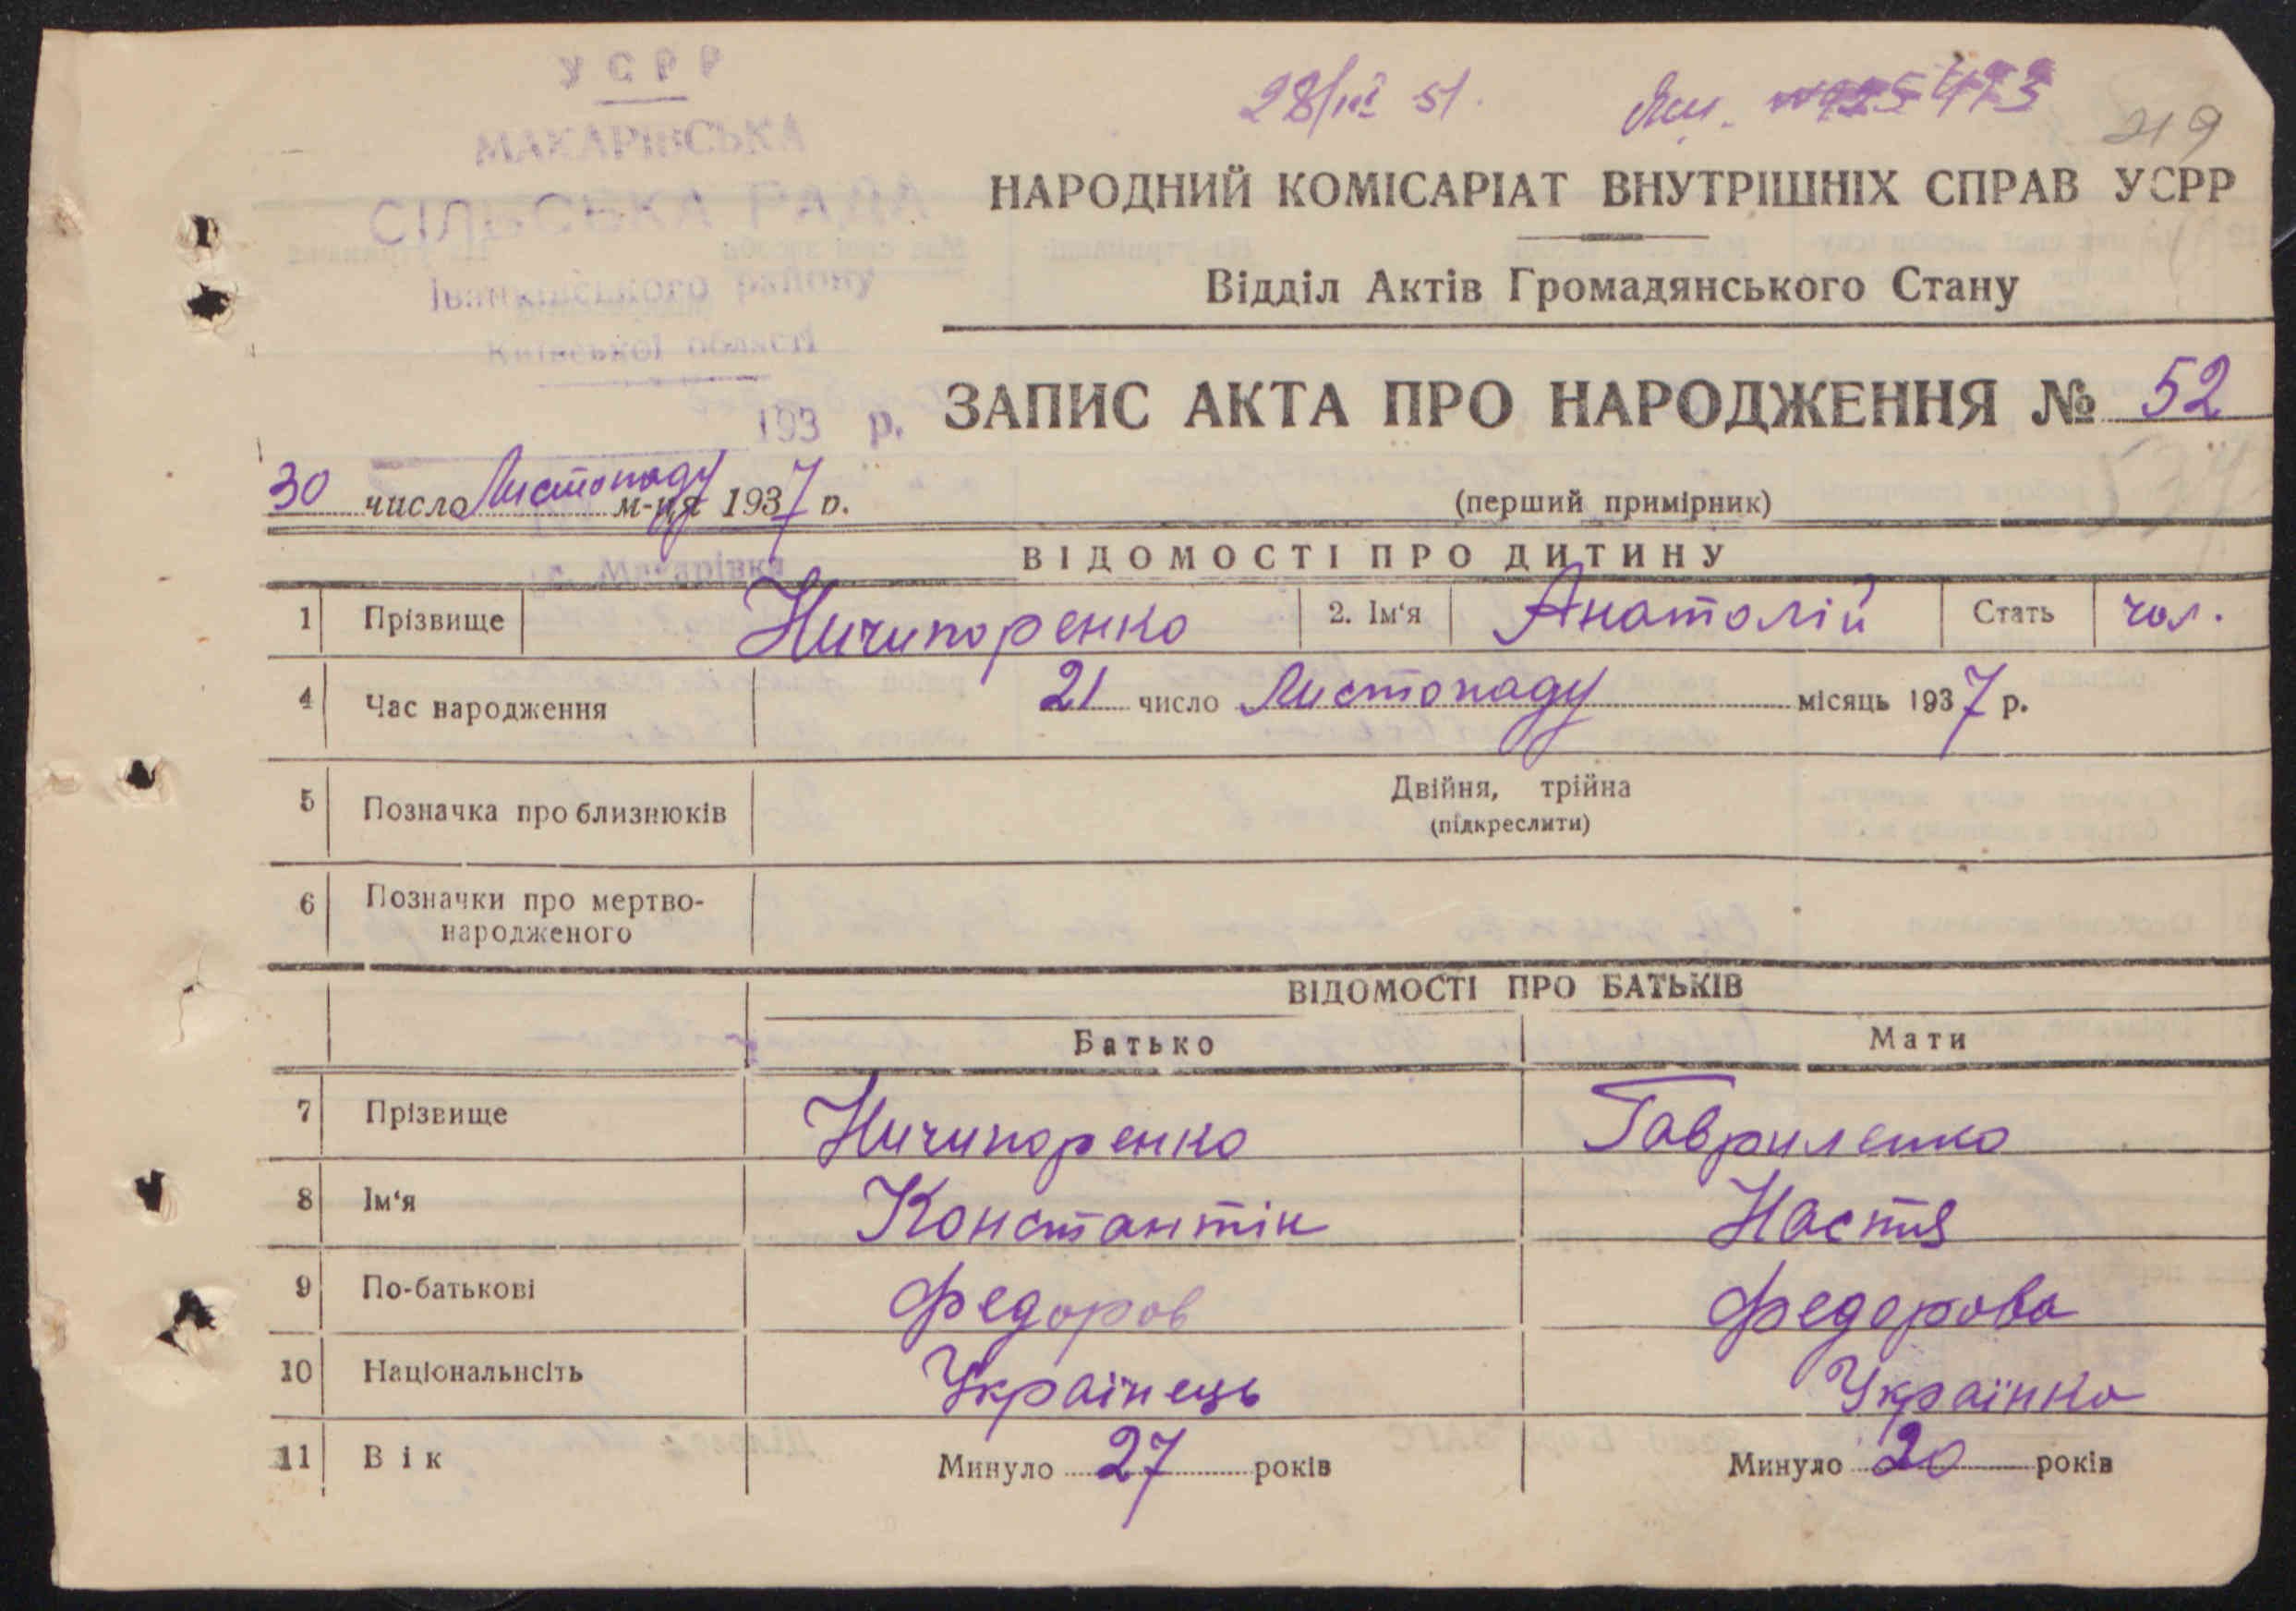 УСРР
МАКАРІВСЬКА
СІЛЬСЬКА РАДА
Іванківського району
Київської області
193 р.
28/III 51.
219
НАРОДНИЙ КОМІСАРІАТ ВНУТРІШНІХ СПРАВ УСРР
Відділ Актів Громадянського Стану
ЗАПИС АКТА ПРО НАРОДЖЕННЯ № 52
30 число Листопаду м-ця 1937 р.
(перший примірник)
с. Макарівка
ВІДОМОСТІ ПРО ДИТИНУ
1 Прізвище Ничипоренко 2. Ім‘я Анатолій Стать чол.
4 Час народження 21 число Листопаду місяць 1937 р.
5 Позначка про близнюків Двійня, трійна
(підкреслити)
6 Позначки про мертво-
народженого
ВІДОМОСТІ ПРО БАТЬКІВ
Батько Мати
7 Прізвище Ничипоренко Гавриленко
8 Ім‘я Константін Настя
9 По-батькові Федоров Федорова
10 Національнсіть Українець Українка
11 Вік Минуло 27 років Минуло 20 років